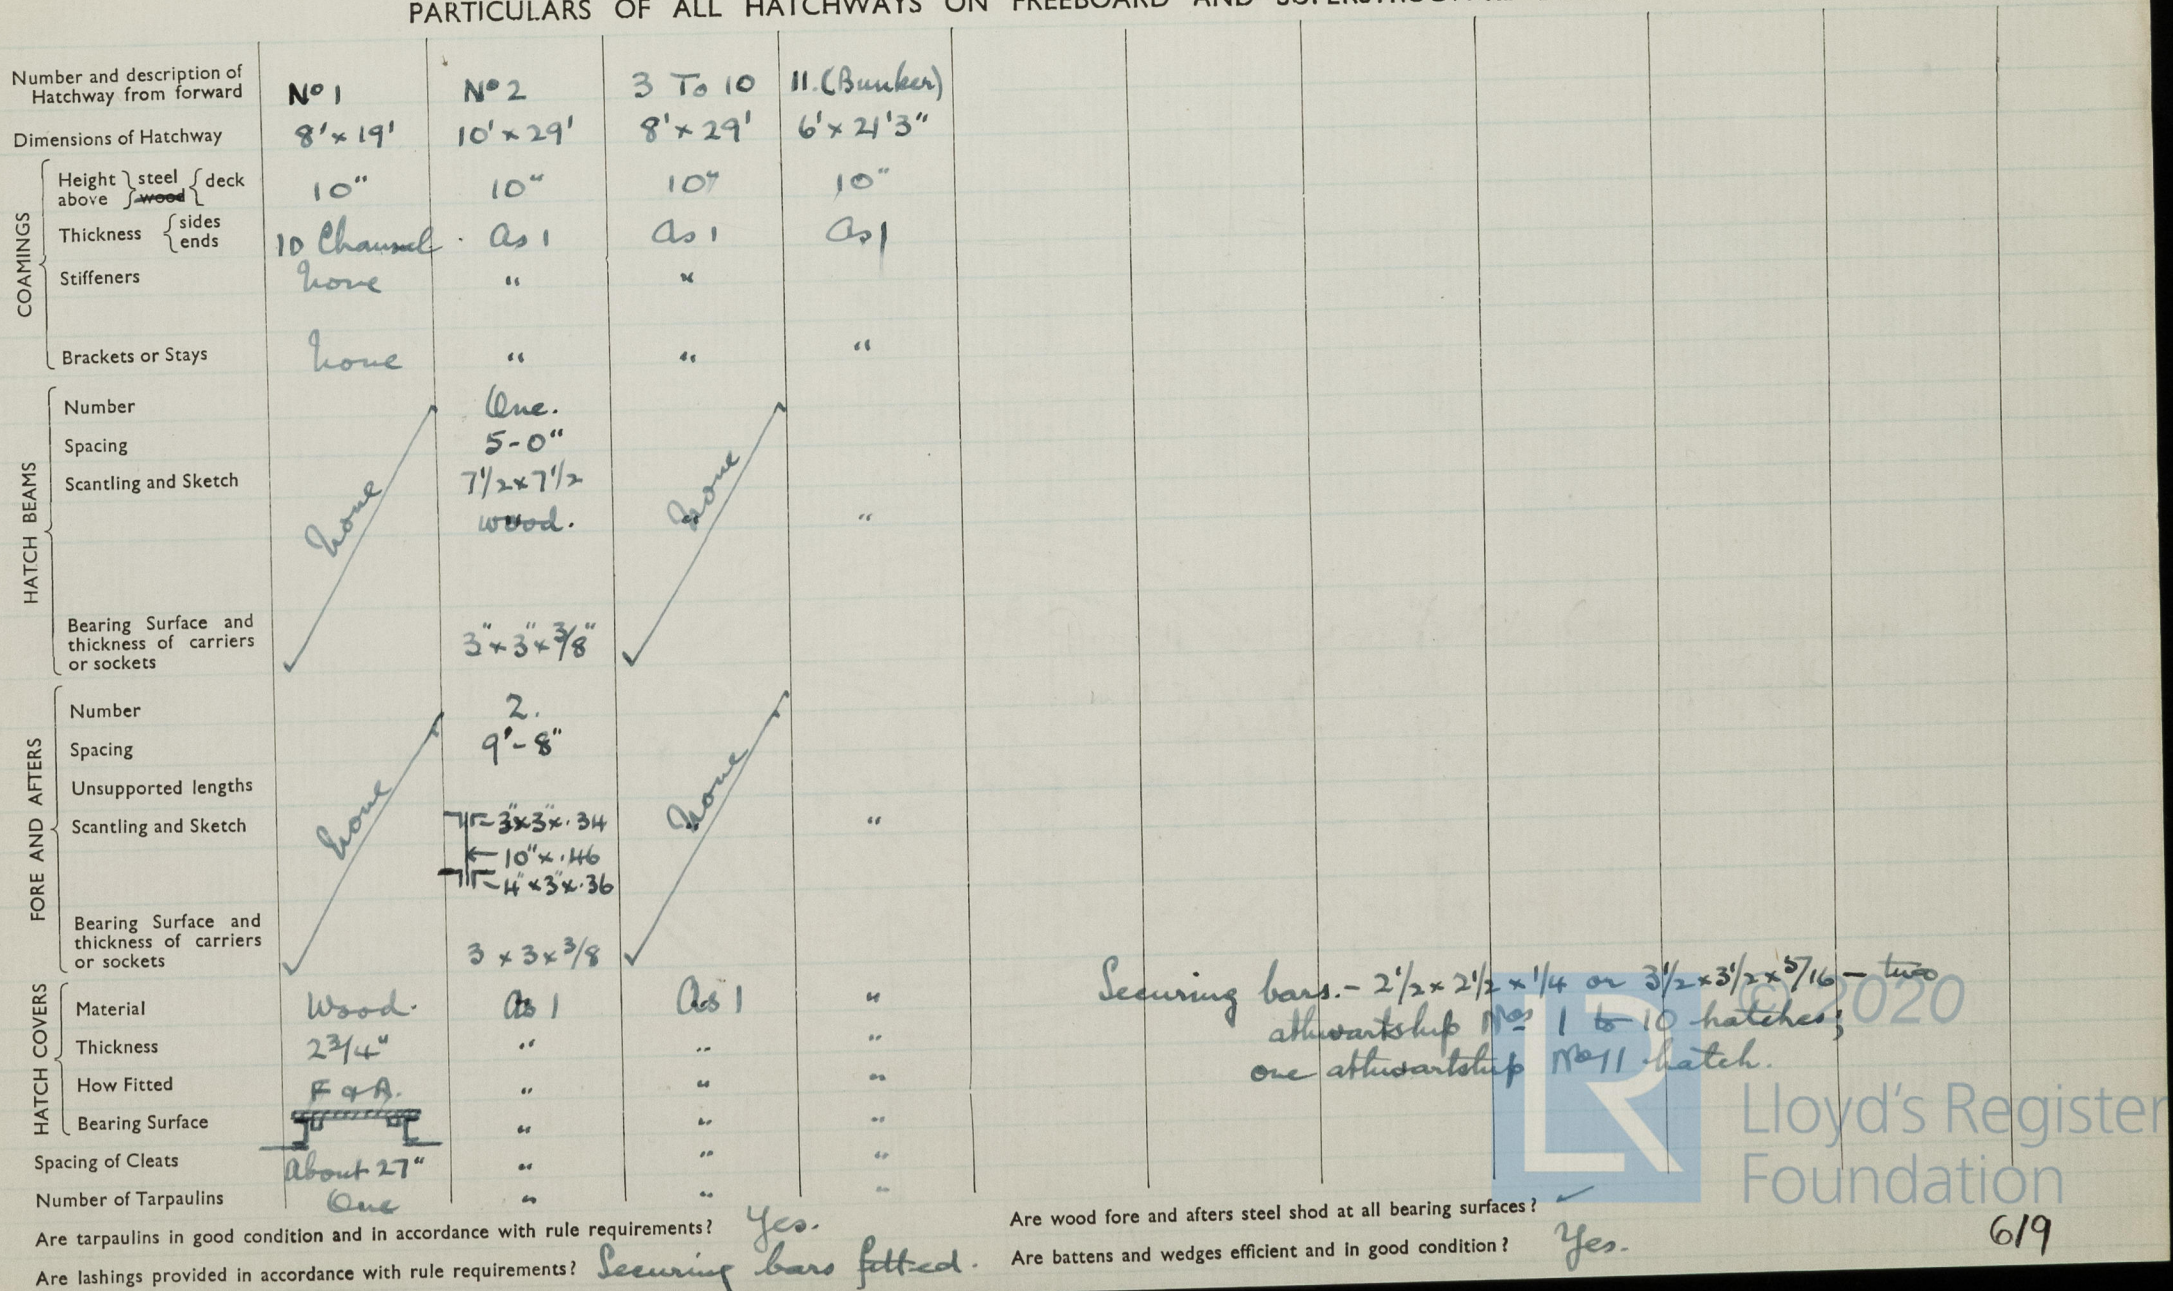 PARTICULARS OF ALL HATCHWAYS ON FREEBOARD AND
Number and description of Hatchway from forward No 1 No 2 3 To 10 11. (Bunker)
Dimensions of Hatchway 8' x 19' 10' x 29' 8' x 29' 6' x 21'3"
COAMINGS
Height above steel wood deck 10" 10" 10" 10"
Thickness sides ends 10 Channel As 1 As 1 As 1
Stiffeners None " "
Brackets or Stays None " " "
HATCH BEAMS
Number One.
Spacing 5-0"
Scantling and Sketch 7 1/2 x 7 1/2
None wood. None "
Bearing Surface and thickness of carriers or sockets 3" x 3" x 3/8"
FORE AND AFTERS
Number 2.
Spacing 9'-8"
Unsupported lengths
Scantling and Sketch None 3" x 3" x .34 None "
10" x .46
4" x 3" x .36
Bearing Surface and thickness of carriers or sockets 3 x 3 x 3/8
HATCH COVERS
Material Wood. As 1 As 1 "
Thickness 2 3/4" " " "
How Fitted F & A. " " "
Bearing Surface " " "
Spacing of Cleats About 27" " " "
Number of Tarpaulins One " " "
Securing bars. - 2 1/2 x 2 1/2 x 1/4 or 3 1/2 x 3 1/2 x 5/16 - two
athwartship Nos 1 to 10 hatches;
one athwartship No 11 hatch.
© 2020
LR
Lloyd's Register
Foundation
Are tarpaulins in good condition and in accordance with rule requirements? Yes.
Are lashings provided in accordance with rule requirements? Securing bars fitted.
Are wood fore and afters steel shod at all bearing surfaces? ✓
Are battens and wedges efficient and in good condition? Yes.
6/9